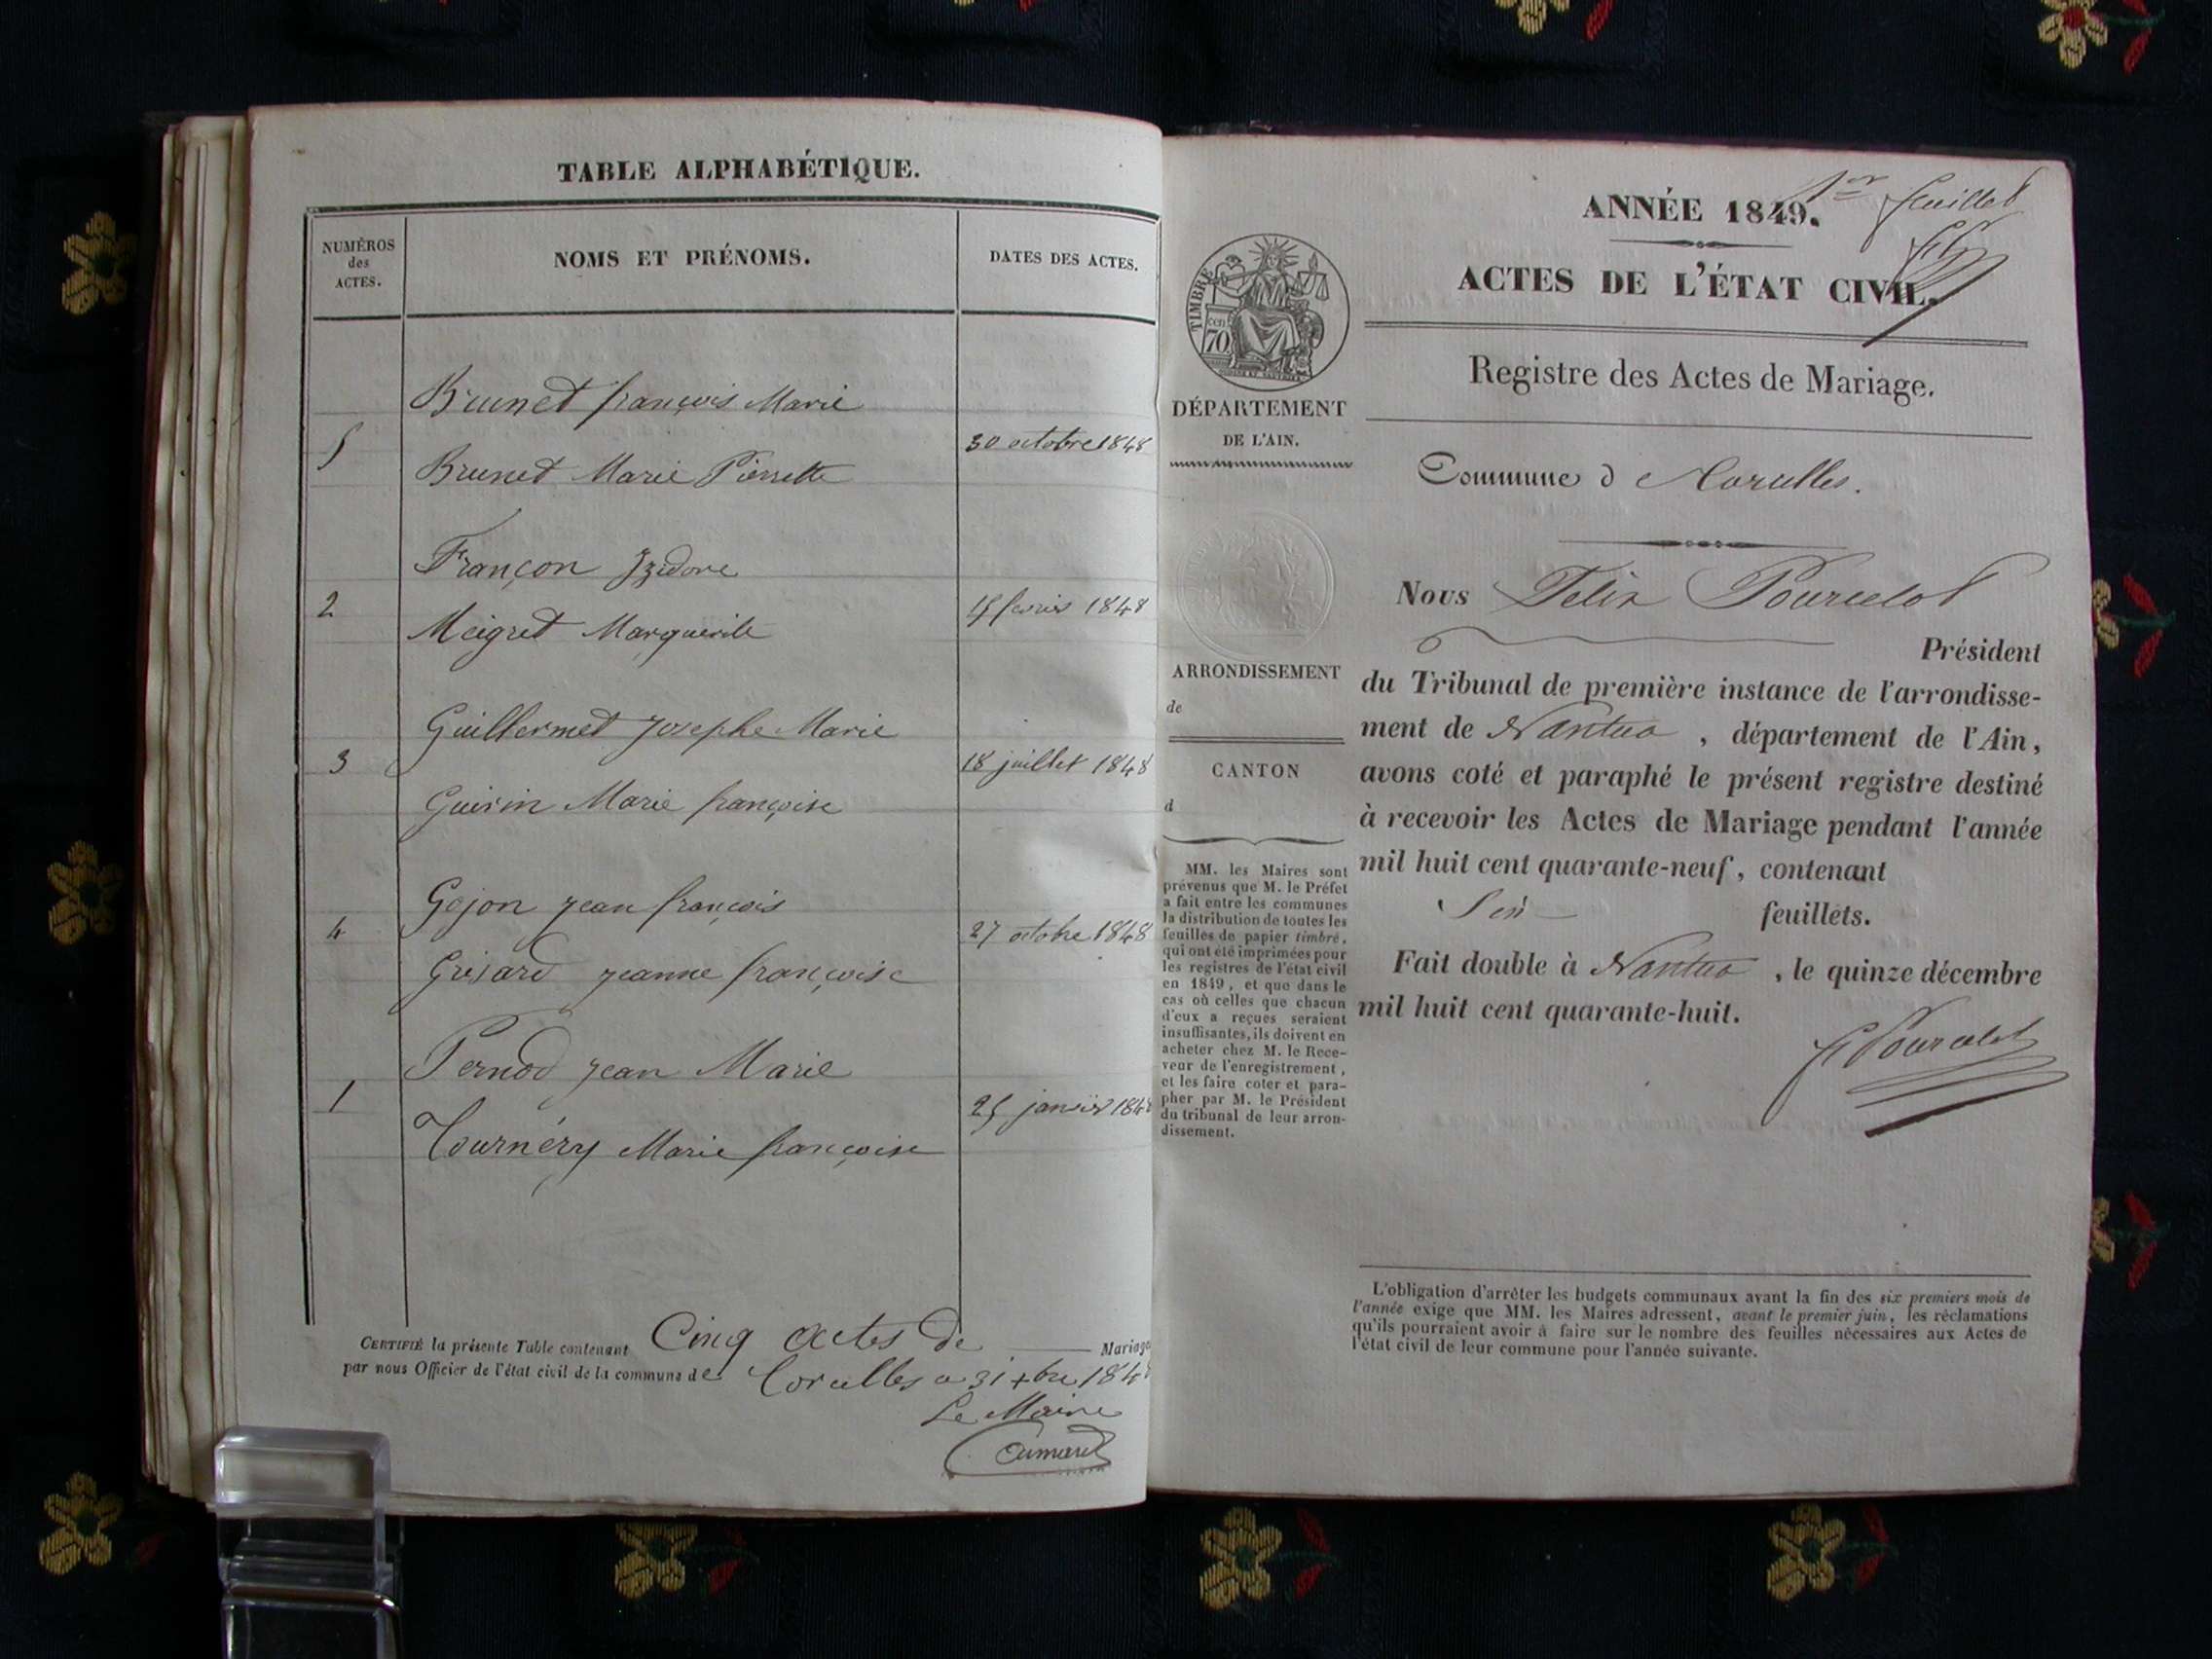 TABLE ALPHABÉTIQUE.
NUMÉROS
des
ACTES.
NOMS ET PRÉNOMS.
DATES DES ACTES.
Brunet françois Marie
5
30 octobre 1848
Brunet Marie Pierrette
Françon Izidore
2
15 fevrier 1848
Meigret Marguerite
Guillermet Josephe Marie
3
18 juillet 1848
Guirin Marie françoise
Gojon jean françois
4
27 octobre 1848
Grisard jeanne françoise
Pernod jean Marie
1
25 janvier 1848
Tournéry Marie françoise
CERTIFIÉ la présente Table contenant Cinq actes de Mariage
par nous Officier de l'état civil de la commune de Corcelles a 31 xbre 184
Le Maire
ANNÉE 1849.
1er feuillet
ACTES DE L'ÉTAT CIVIL.
Registre des Actes de Mariage.
TIMBRE
cen
70
DÉPARTEMENT
DE L'AIN.
ARRONDISSEMENT
de
CANTON
d
MM. les Maires sont
prévenus que M. le Préfet
a fait entre les communes
la distribution de toutes les
feuilles de papier timbré,
qui ont été imprimées pour
les registres de l'état civil
en 1849, et que dans le
cas où celles que chacun
d'eux a reçues seraient
insuffisantes, ils doivent en
acheter chez M. le Rece-
veur de l'enregistrement,
et les faire coter et para-
pher par M. le Président
du tribunal de leur arron-
dissement.
Commune d Corcelles.
Nous Felix Pourcelot
Président
du Tribunal de première instance de l'arrondisse-
ment de Nantua, département de l'Ain,
avons coté et paraphé le présent registre destiné
à recevoir les Actes de Mariage pendant l'année
mil huit cent quarante-neuf, contenant
feuillets.
Fait double à Nantua, le quinze décembre
mil huit cent quarante-huit.
F Pourcelot
L'obligation d'arrêter les budgets communaux avant la fin des six premiers mois de
l'année exige que MM. les Maires adressent, avant le premier juin, les réclamations
qu'ils pourraient avoir à faire sur le nombre des feuilles nécessaires aux Actes de
l'état civil de leur commune pour l'année suivante.